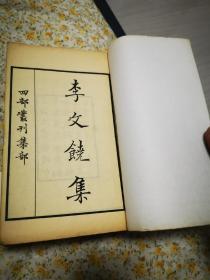 李文饒集
四部叢刊集部